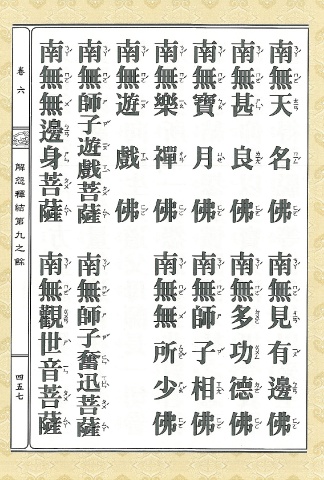 南無天名佛
南無見有邊佛
南無甚良佛
南無多功德佛
南無寶月佛
南無師子相佛
南無樂禪佛
南無無所少佛
南無遊戲佛
南無師子遊戲菩薩
南無師子奮迅菩薩
南無無邊身菩薩
南無觀世音菩薩
卷六
解怨釋結第九之餘
四五七